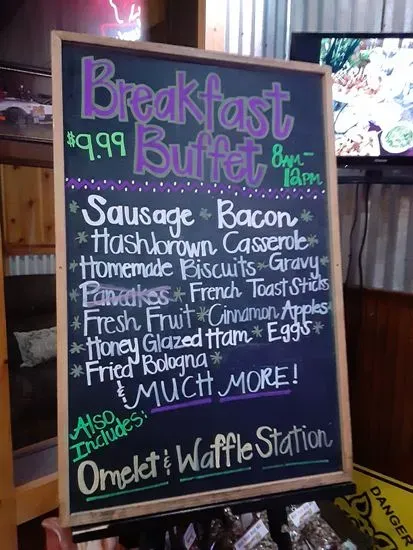 Breakfast
$9.99 Buffet 8AM-
12PM
*Sausage * Bacon*
*Hashbrown Casserole*
*Homemade Biscuits * Gravy
Pancakes * French Toast Sticks
*Fresh Fruit * Cinnamon Apples
*Honey Glazed Ham * Eggs *
*Fried Bologna *
& MUCH MORE!
Also
Includes:
Omelet & Waffle Station
DANGER